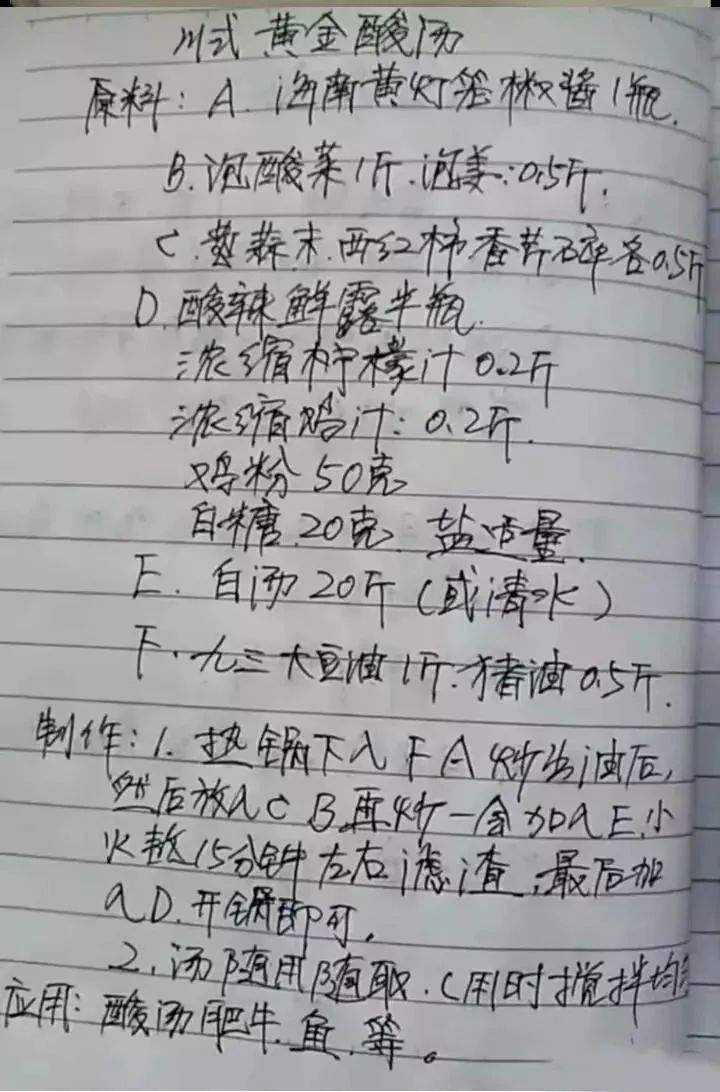 川式黄金酸汤
原料: A. 海南黄灯笼椒酱1瓶.
B. 泡酸菜1斤. 泡姜: 0.5斤.
C. 蒜末. 西红柿香芹碎各0.5斤
D. 酸辣鲜露半瓶.
浓缩柠檬汁0.2斤
浓缩鸡汁: 0.2斤.
鸡粉50克
白糖.20克. 盐适量.
E. 白汤20斤(或清水)
F. 九三大豆油1斤.猪油0.5斤.
制作: 1. 热锅下入F A炒出油后,
然后放入C B.再炒一会加入E.小
火熬15分钟左右滤渣,最后加
入D.开锅即可.
2. 汤随用随取.(用时搅拌均
应用: 酸汤肥牛.鱼.等。